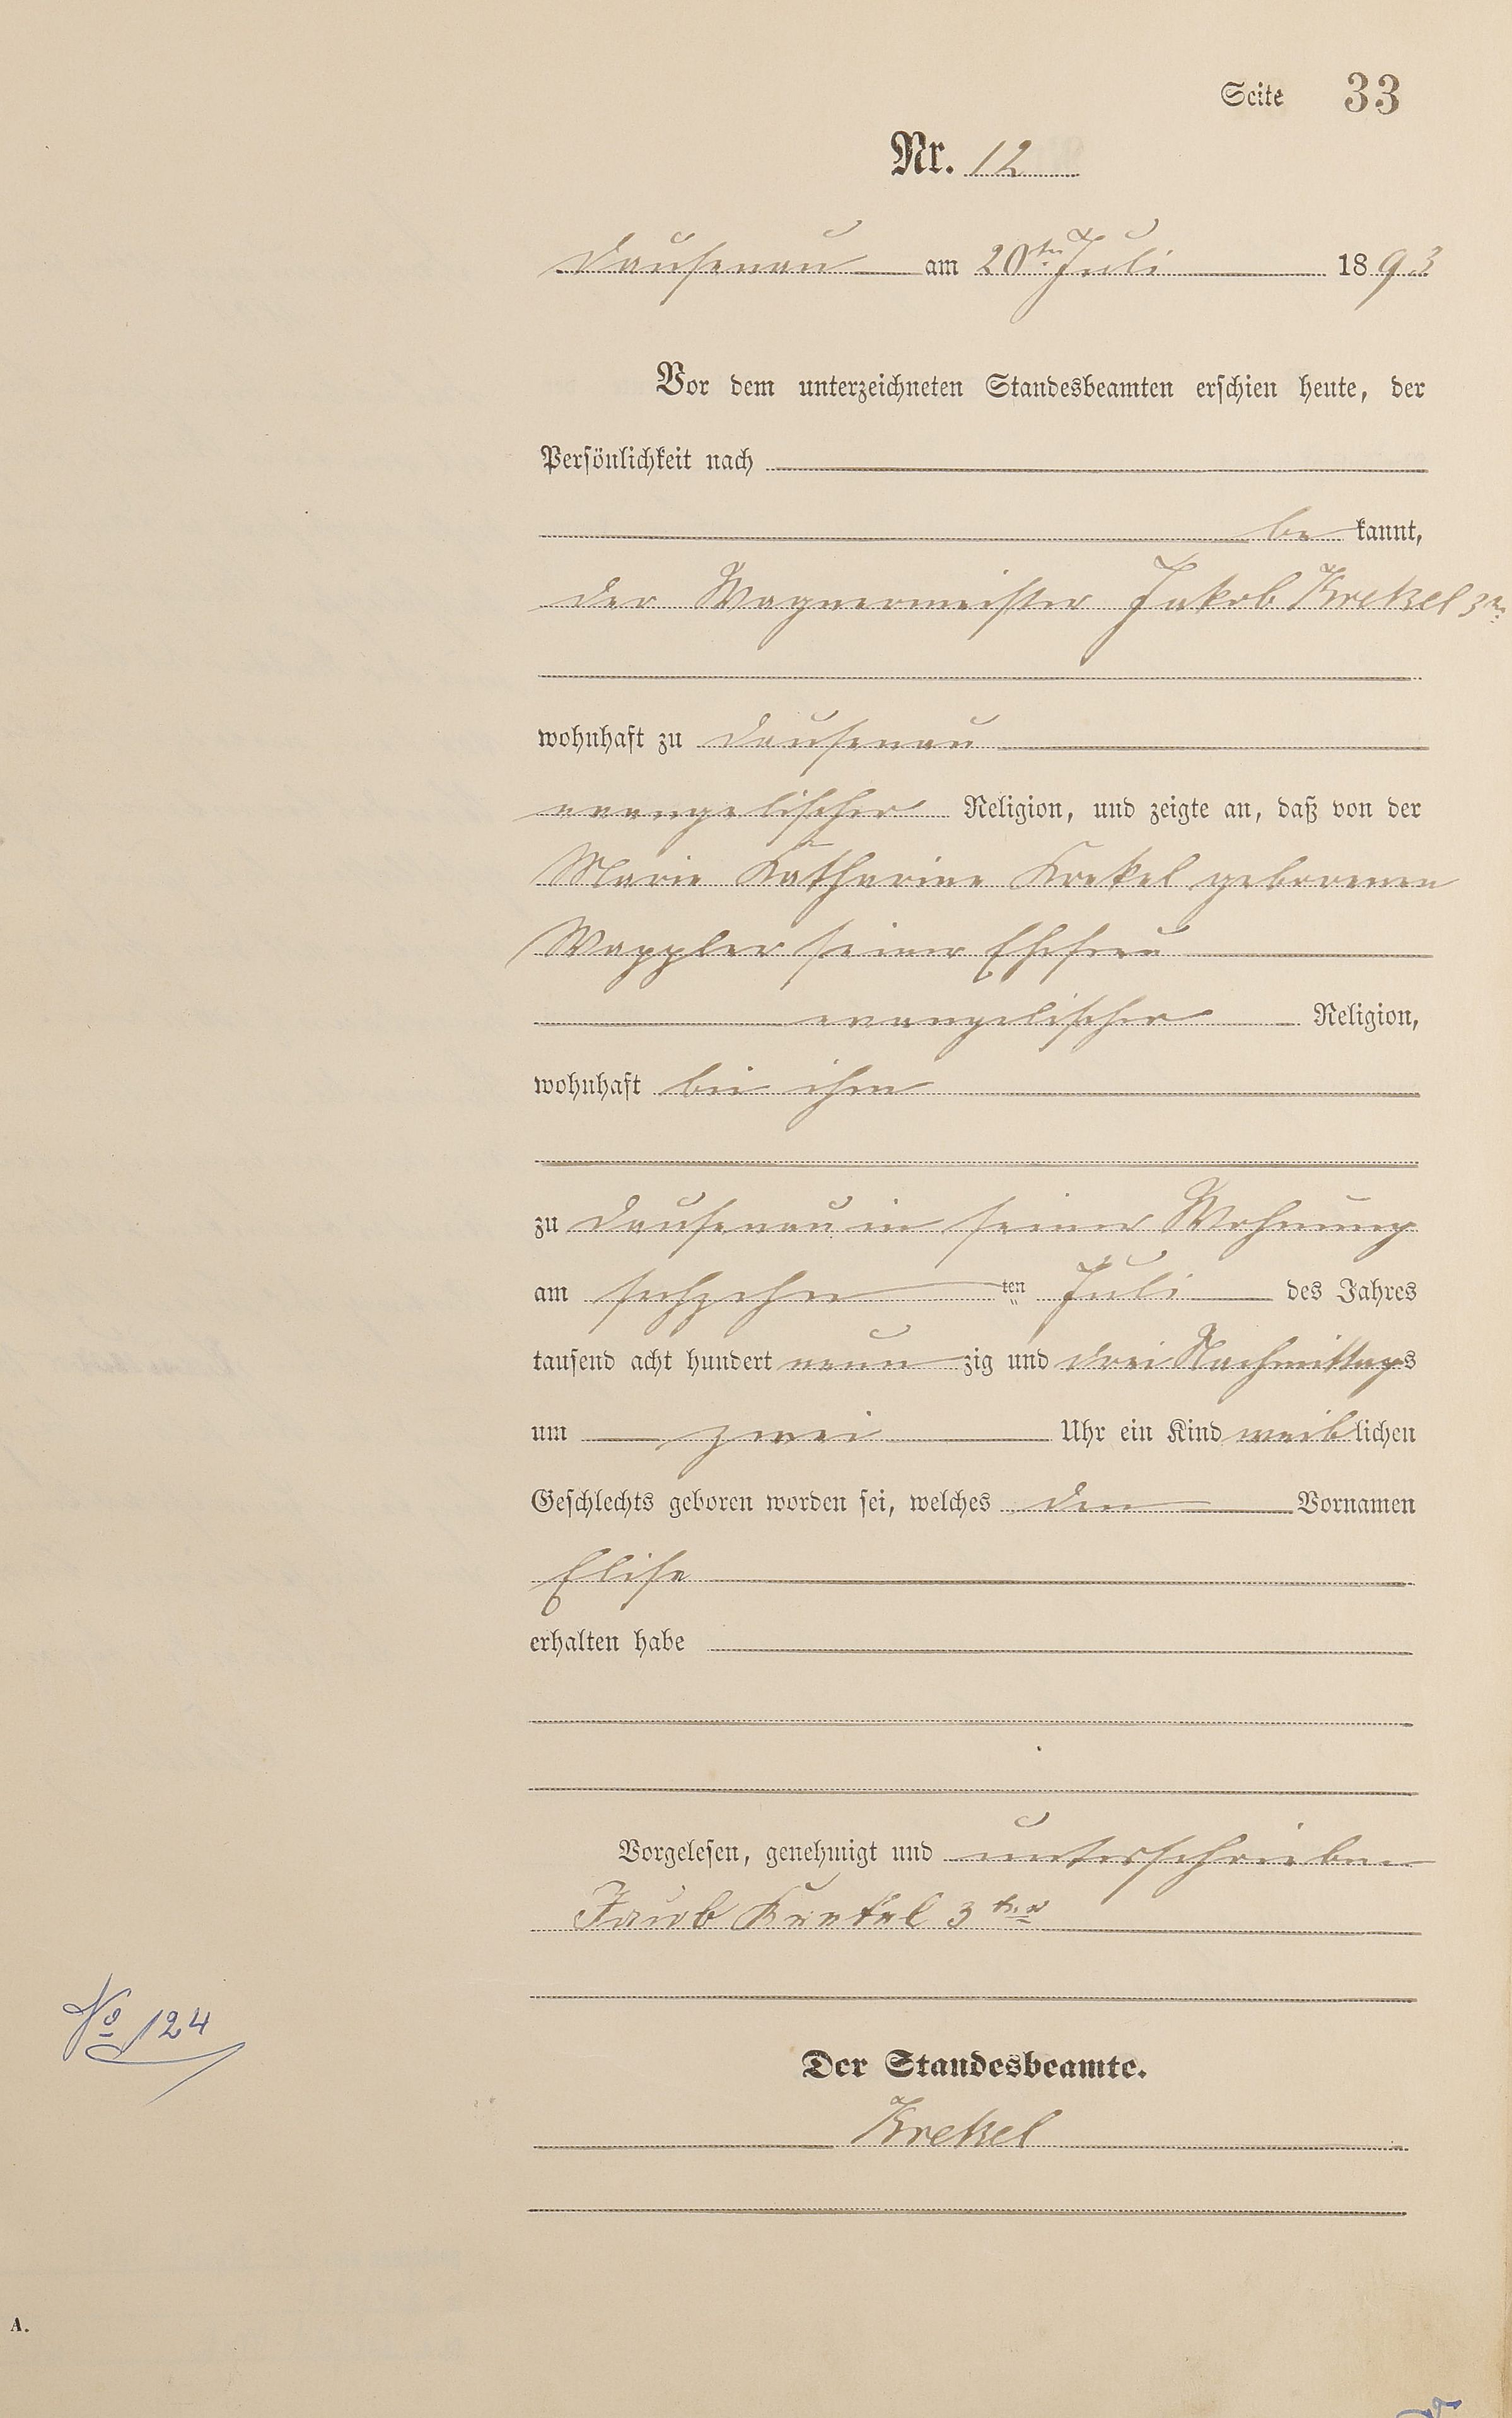 Seite 33
Nr. 12
Dausenau am 20ten Juli 1893
Vor dem unterzeichneten Standesbeamten erschien heute, der
Persönlichkeit nach
be kannt,
der Wagnermeister Jakob Krekel 3r
wohnhaft zu Dausenau
evangelischer Religion, und zeigte an, daß von der
Marie Katharine Krekel geborenen
Wappler seiner Ehefrau
evangelischer Religion,
wohnhaft bei ihm
zu Dausenau in seiner Wohnung
am sechzehn ten Juli des Jahres
tausend acht hundert neun zig und drei Nachmittags
um zwei Uhr ein Kind weiblichen
Geschlechts geboren worden sei, welches den Vornamen
Elise
erhalten habe
Vorgelesen, genehmigt und unterschrieben
Jacob Krekel 3ter
No 124
Der Standesbeamte.
Krekel
A.